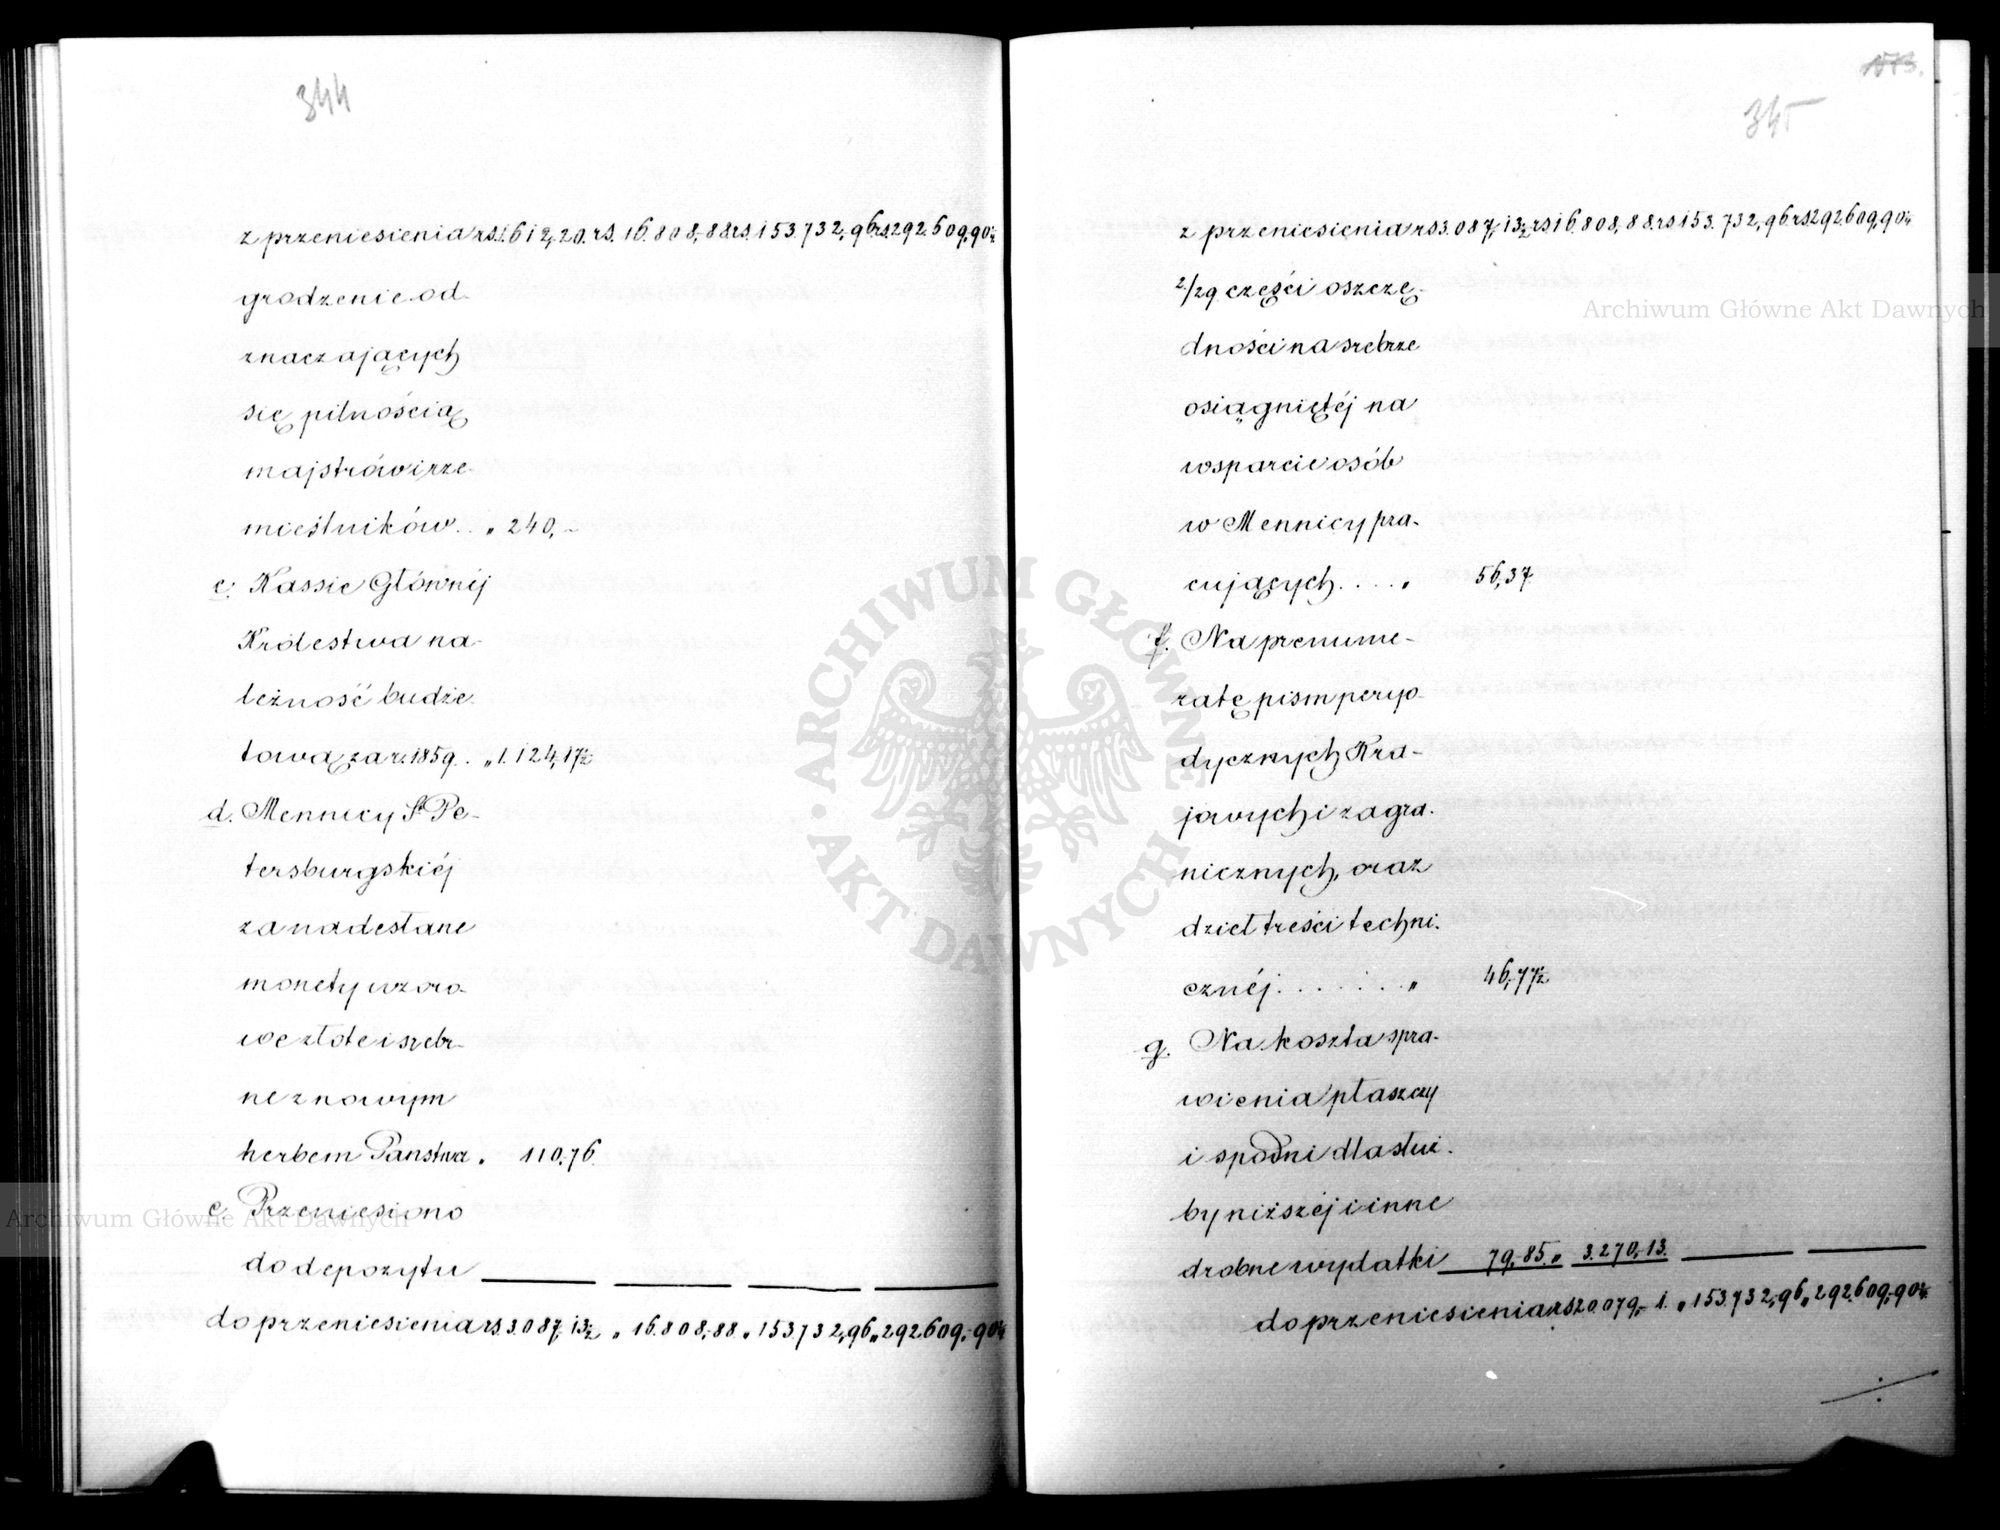 344
z przeniesienia rs. 1.612,-20. rs. 16.808,-88 rs. 153.732,-96 rs. 292.609,-90½
grodzenie od-
znaczających
się pilnością
majstrów i rze-
mieślników . . „ 240,-
c. Kassie Głównéj
Królestwa na-
leżność budże-
towa za r. 1859. . „ 1.124,17½
d. Mennicy St Pe-
tersburgskiéj
za nadesłane
monety wzoro-
we złote i srebr-
ne z nowym
herbem Państwa „ 110,-76.
e. Przeniesiono
do depozytu
do przeniesienia rs. 3.087,13½ „ 16.808,-88 „ 153.732,96 „ 292.609,-90½
345
z przeniesienia rs 3.087,-13½ rs 16.808,88 rs 153.732,-96 rs 292.609,-90½
2/29 części oszczę-
dności na srebrze
osiągniętéj na
wsparcie osób
w Mennicy pra-
cujących. . . . „ 56,37.
f. Na prenume-
ratę pism peryo-
dycznych Kra-
jowych i zagra-
nicznych, oraz
dzieł treści techni-
cznéj. . . . . . „ 46,-77½
g. Na koszta spra-
wienia płaszczy
i spodni dla służ-
by niższéj i inne
drobne wydatki 79,-85. „ 3.270,-13.
do przeniesienia rs 20.079,-1. „ 153.732,-96 „ 292.609,-90½
ARCHIWUM GŁÓWNE AKT DAWNYCH
Archiwum Główne Akt Dawnych
Archiwum Główne Akt Dawnych